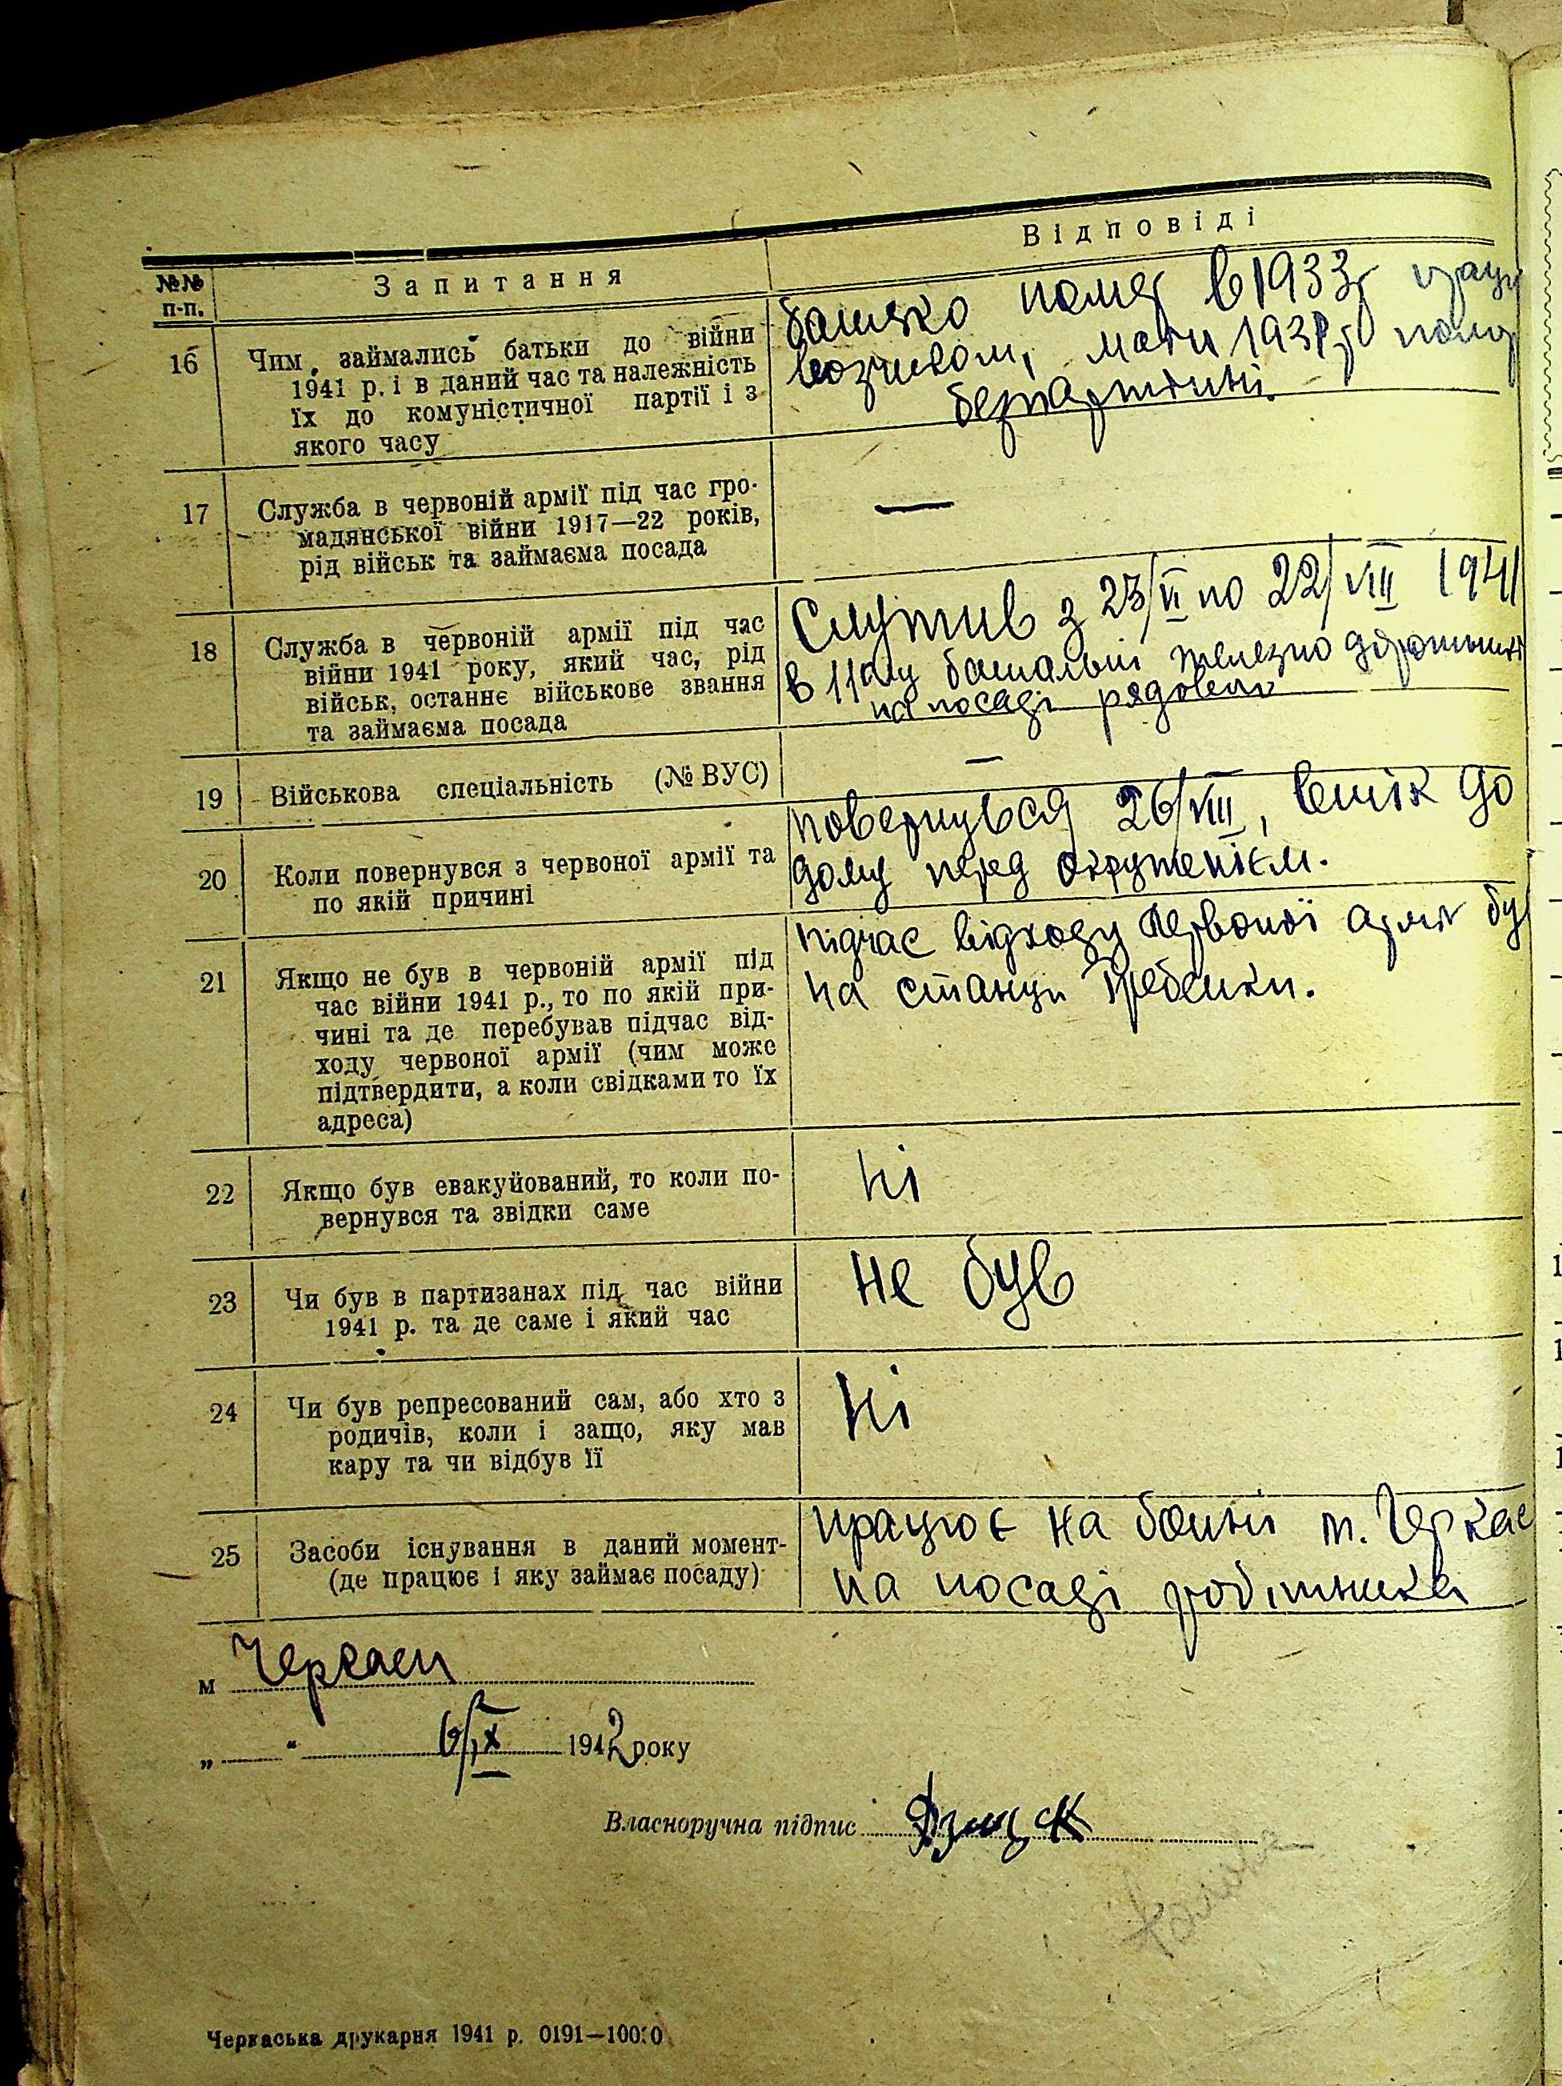 Відповіді
№№ п-п.
Запитання
16
Чим займались батьки до війни
1941 р. і в даний час та належність
їх до комуністичної партії і з
якого часу
батько помер в 1933р працю
возчиком, мати 193 р помер
безпартійні.
17
Служба в червоній армії під час гро-
мадянської війни 1917—22 років,
рід військ та займаєма посада
—
18
Служба в червоній армії під час
війни 1941 року, який час, рід
військ, останнє військове звання
та займаєма посада
Служив з 23/VI по 22/VIII 1941
в 11ому батальйні железно дорожньо
на посаді рядового
19
Військова спеціальність (№ ВУС)
—
20
Коли повернувся з червоної армії та
по якій причині
повернувься 26/VIII, втік до
дому перед окруженієм.
21
Якщо не був в червоній армії під
час війни 1941 р., то по якій при-
чині та де перебував підчас від-
ходу червоної армії (чим може
підтвердити, а коли свідками то їх
адреса)
підчас відходу Червоної армії бу
на станци Гребенки.
22
Якщо був евакуйований, то коли по-
вернувся та звідки саме
ні
23
Чи був в партизанах під час війни
1941 р. та де саме і який час
не був
24
Чи був репресований сам, або хто з
родичів, коли і защо, яку мав
кару та чи відбув її
Ні
25
Засоби існування в даний момент-
(де працює і яку займає посаду)
працює на бойні м. Черкас
на посаді робітника
м Черкаси
„ “ 6/IX 1942 року
Власноручна підпис
Черкаська друкарня 1941 р. 0191—10000